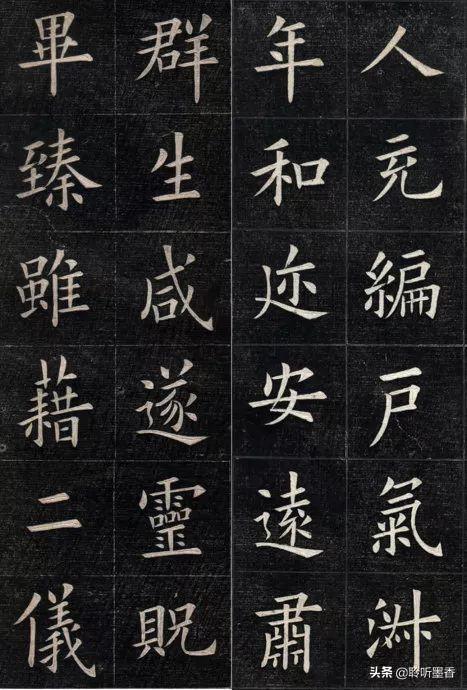 人充編戶氣淑
年和迩安遠肅
群生咸遂靈貺
畢臻雖藉二儀
头条 @聆听墨香